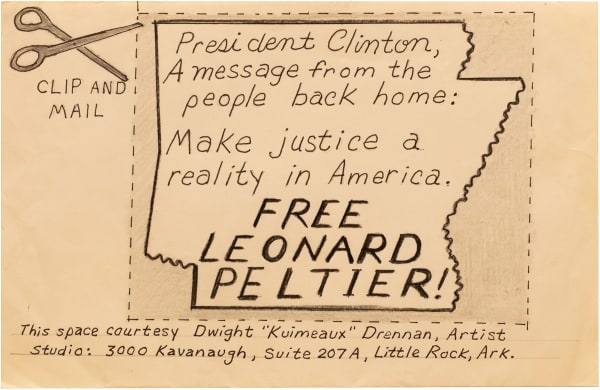 CLIP AND
MAIL
President Clinton,
A message from the
people back home:
Make justice a
reality in America.
FREE
LEONARD
PELTIER!
This space courtesy Dwight "Kuimeaux" Drennan, Artist
Studio: 3000 Kavanaugh, Suite 207A, Little Rock, Ark.